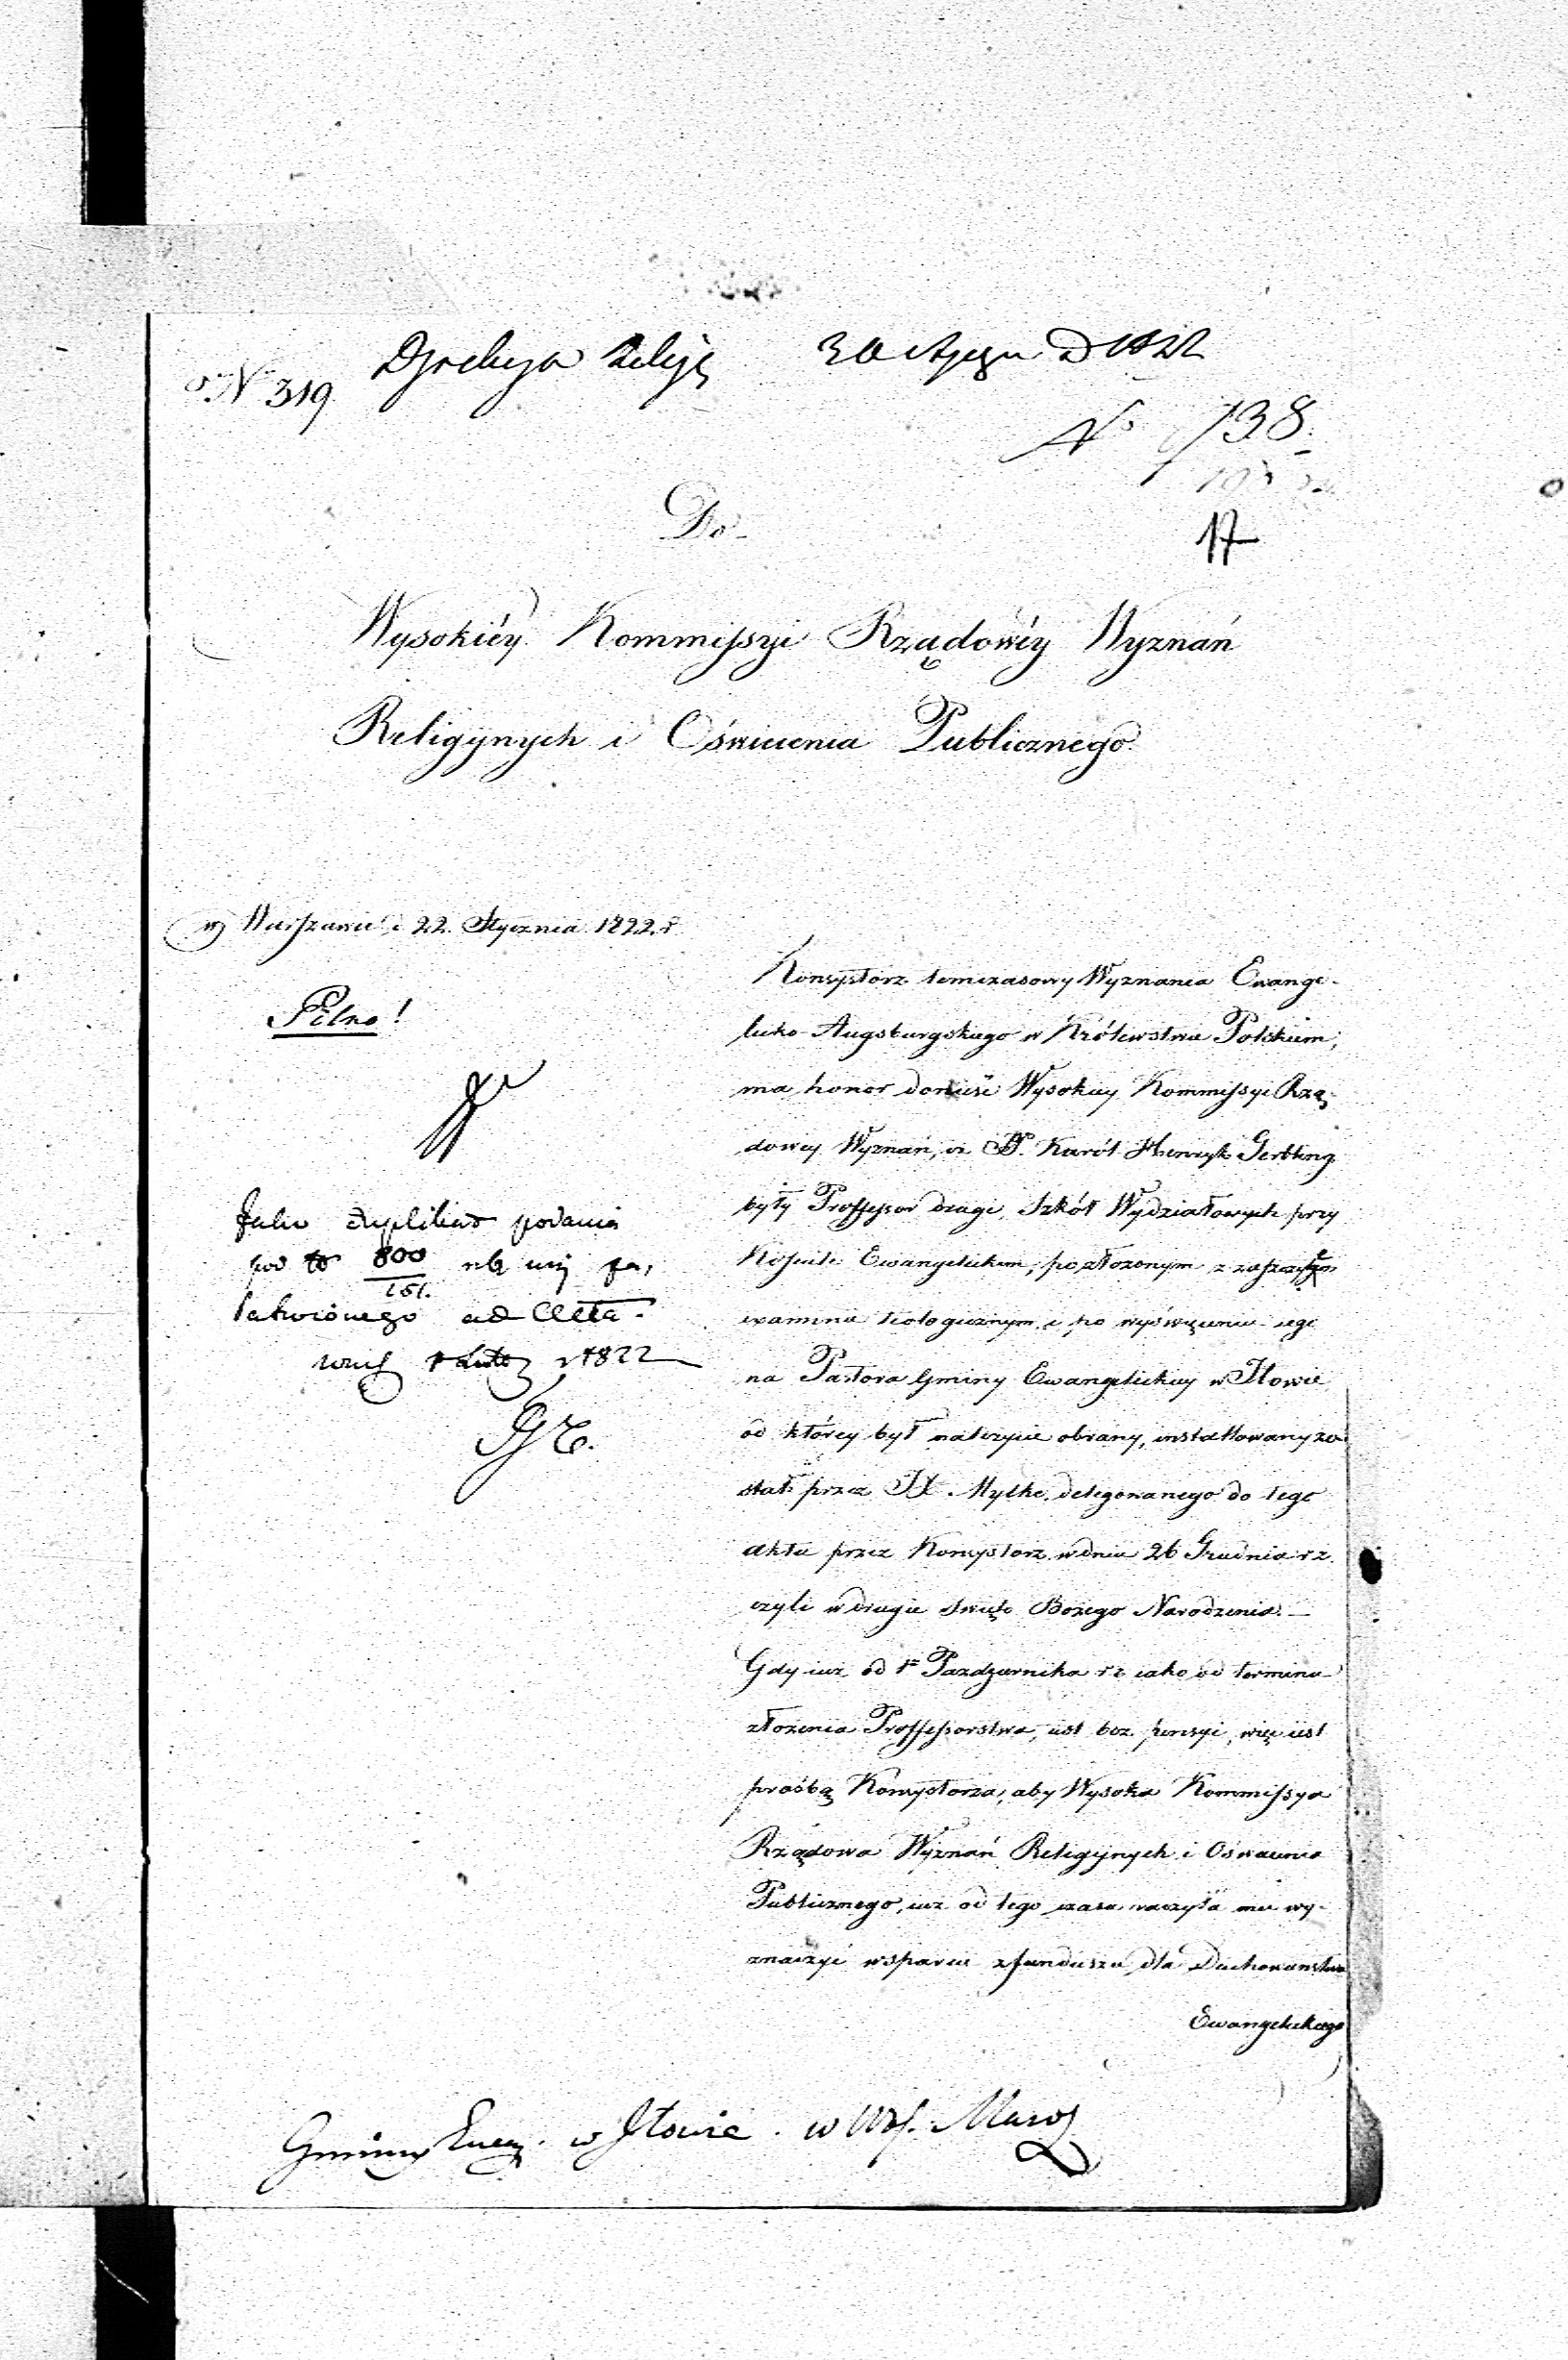 N 319
Dyrekcya Religij 30 Stycznia 1822
N° 738.
17
Do
Wysokiéy Kommissyi Rządowéy Wyznań
Religijnych i Oświecenia Publicznego
w Warszawie d. 22. Stycznia 1822. r.
Pilno!
Jako duplikat podania
pod 800
151.
łatwionego ad Acta.
1822
Konsystorz tymczasowy Wyznania Ewange-
licko-Augsburgskiego w Królewstwie Polskiem,
ma honor donieść Wysokiey Kommissyi Rzą-
dowey Wyznań, iż P. Karól Henryk Gerbling
były Professor drugi Szkół Wydziałowych przy
Kościele Ewangelickim, po złożonym z zaszczytem
examinie teologicznym, i po wyświęceniu iego
na Pastora Gminy Ewangelickiey w Iłowie
od którey był należycie obrany, installowany zo-
stał przez X. Mylke, delegowanego do tego
aktu przez Konsystorz w dniu 26 Grudnia r. z.
czyli w drugie święto Bożego Narodzenia. —
Gdy iuż od 1° Pazdziernika r. z. iako od terminu
złożenia Professorstwa, iest bez pensyi, więc iest
prośbą Konsystorza, aby Wysoka Kommissya
Rządowa Wyznań Religijnych i Oświecenia
Publicznego, iuż od tego czasu raczyła mu wy-
znaczyć wsparcie z funduszu dla Duchowieństwa
Ewangelickiego
Gminy Ewang. w Iłowie. w Woj. Mazow.